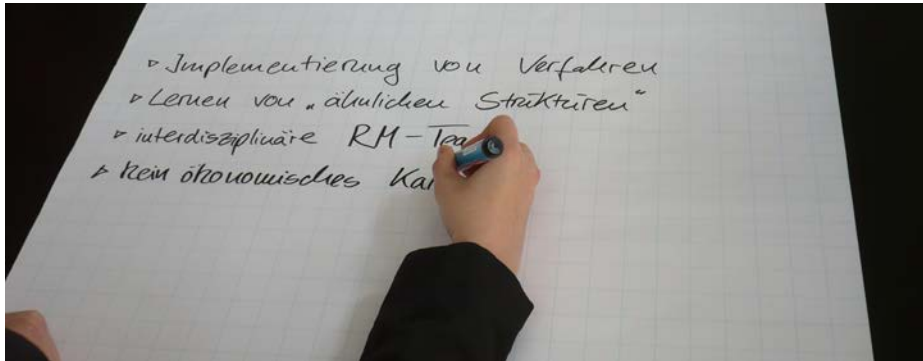 ▹ Implementierung von Verfahren
▹ Lernen von „ähnlichen Strukturen“
▹ interdisziplinäre RM-Tea
▹ kein ökonomisches Ka